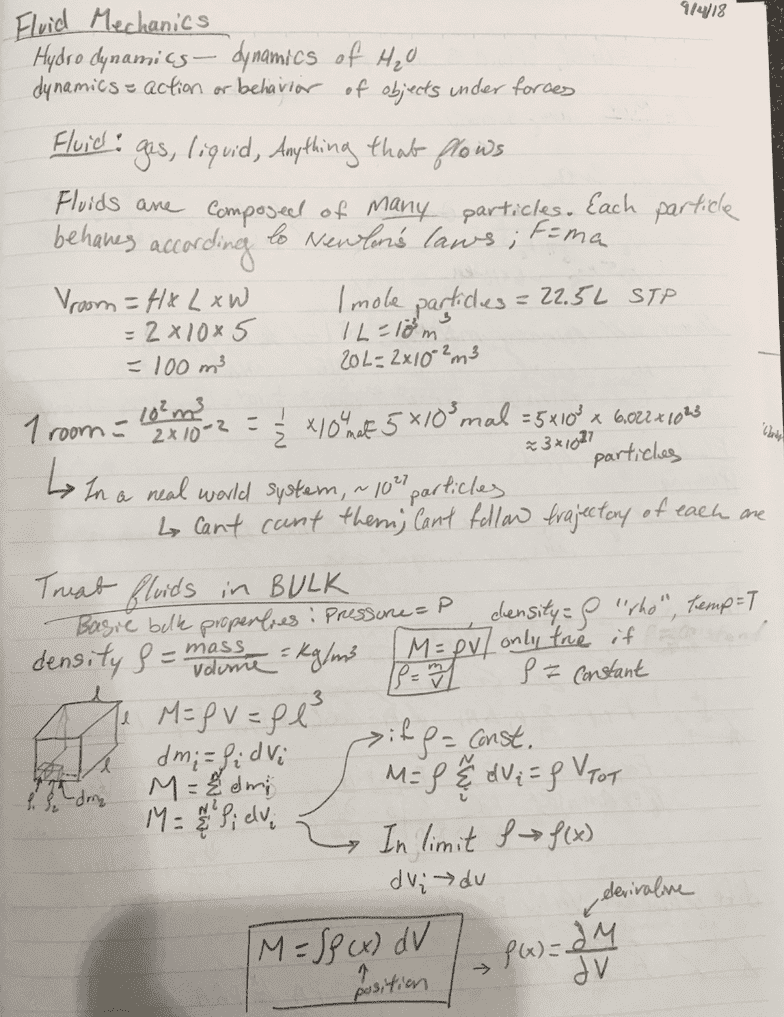 9/4/18
Fluid Mechanics
Hydrodynamics — dynamics of H₂O
dynamics = action or behavior of objects under forces
Fluid: gas, liquid, Anything that flows
Fluids are composed of MANY particles. Each particle
behaves according to Newton's laws; F=ma
Vroom = H x L x W
= 2 x 10 x 5
= 100 m³
1 mole particles = 22.5L STP
1L = 10⁻³ m³
20L = 2x10⁻² m³
1 room = 10² m³ / 2 x 10⁻² = 1/2 x10⁴ mol = 5 x10³ mol = 5x10³ x 6.022 x 10²³
≈ 3 x 10²⁷ particles
↳ In a real world system, ~ 10²⁷ particles
↳ Cant count them; Cant follow trajectory of each one
Treat fluids in BULK
Basic bulk properties: Pressure = P, density = ρ "rho", Temp = T
density ρ = mass / volume = kg/m³
M = ρV only true if
ρ = m/V ρ = constant
l l l
ρ₁ ρ₂ dm₂
M = ρV = ρl³
dmᵢ = ρᵢ dVᵢ
M = Σᵢᴺ dmᵢ
M = Σᵢᴺ ρᵢ dVᵢ
→ if ρ = const.
M = ρ Σᵢᴺ dVᵢ = ρ V_TOT
→ In limit ρ → ρ(x)
dVᵢ → dV
M = ∫ρ(x) dV
↑
position
→ ρ(x) = ∂M / ∂V
derivative